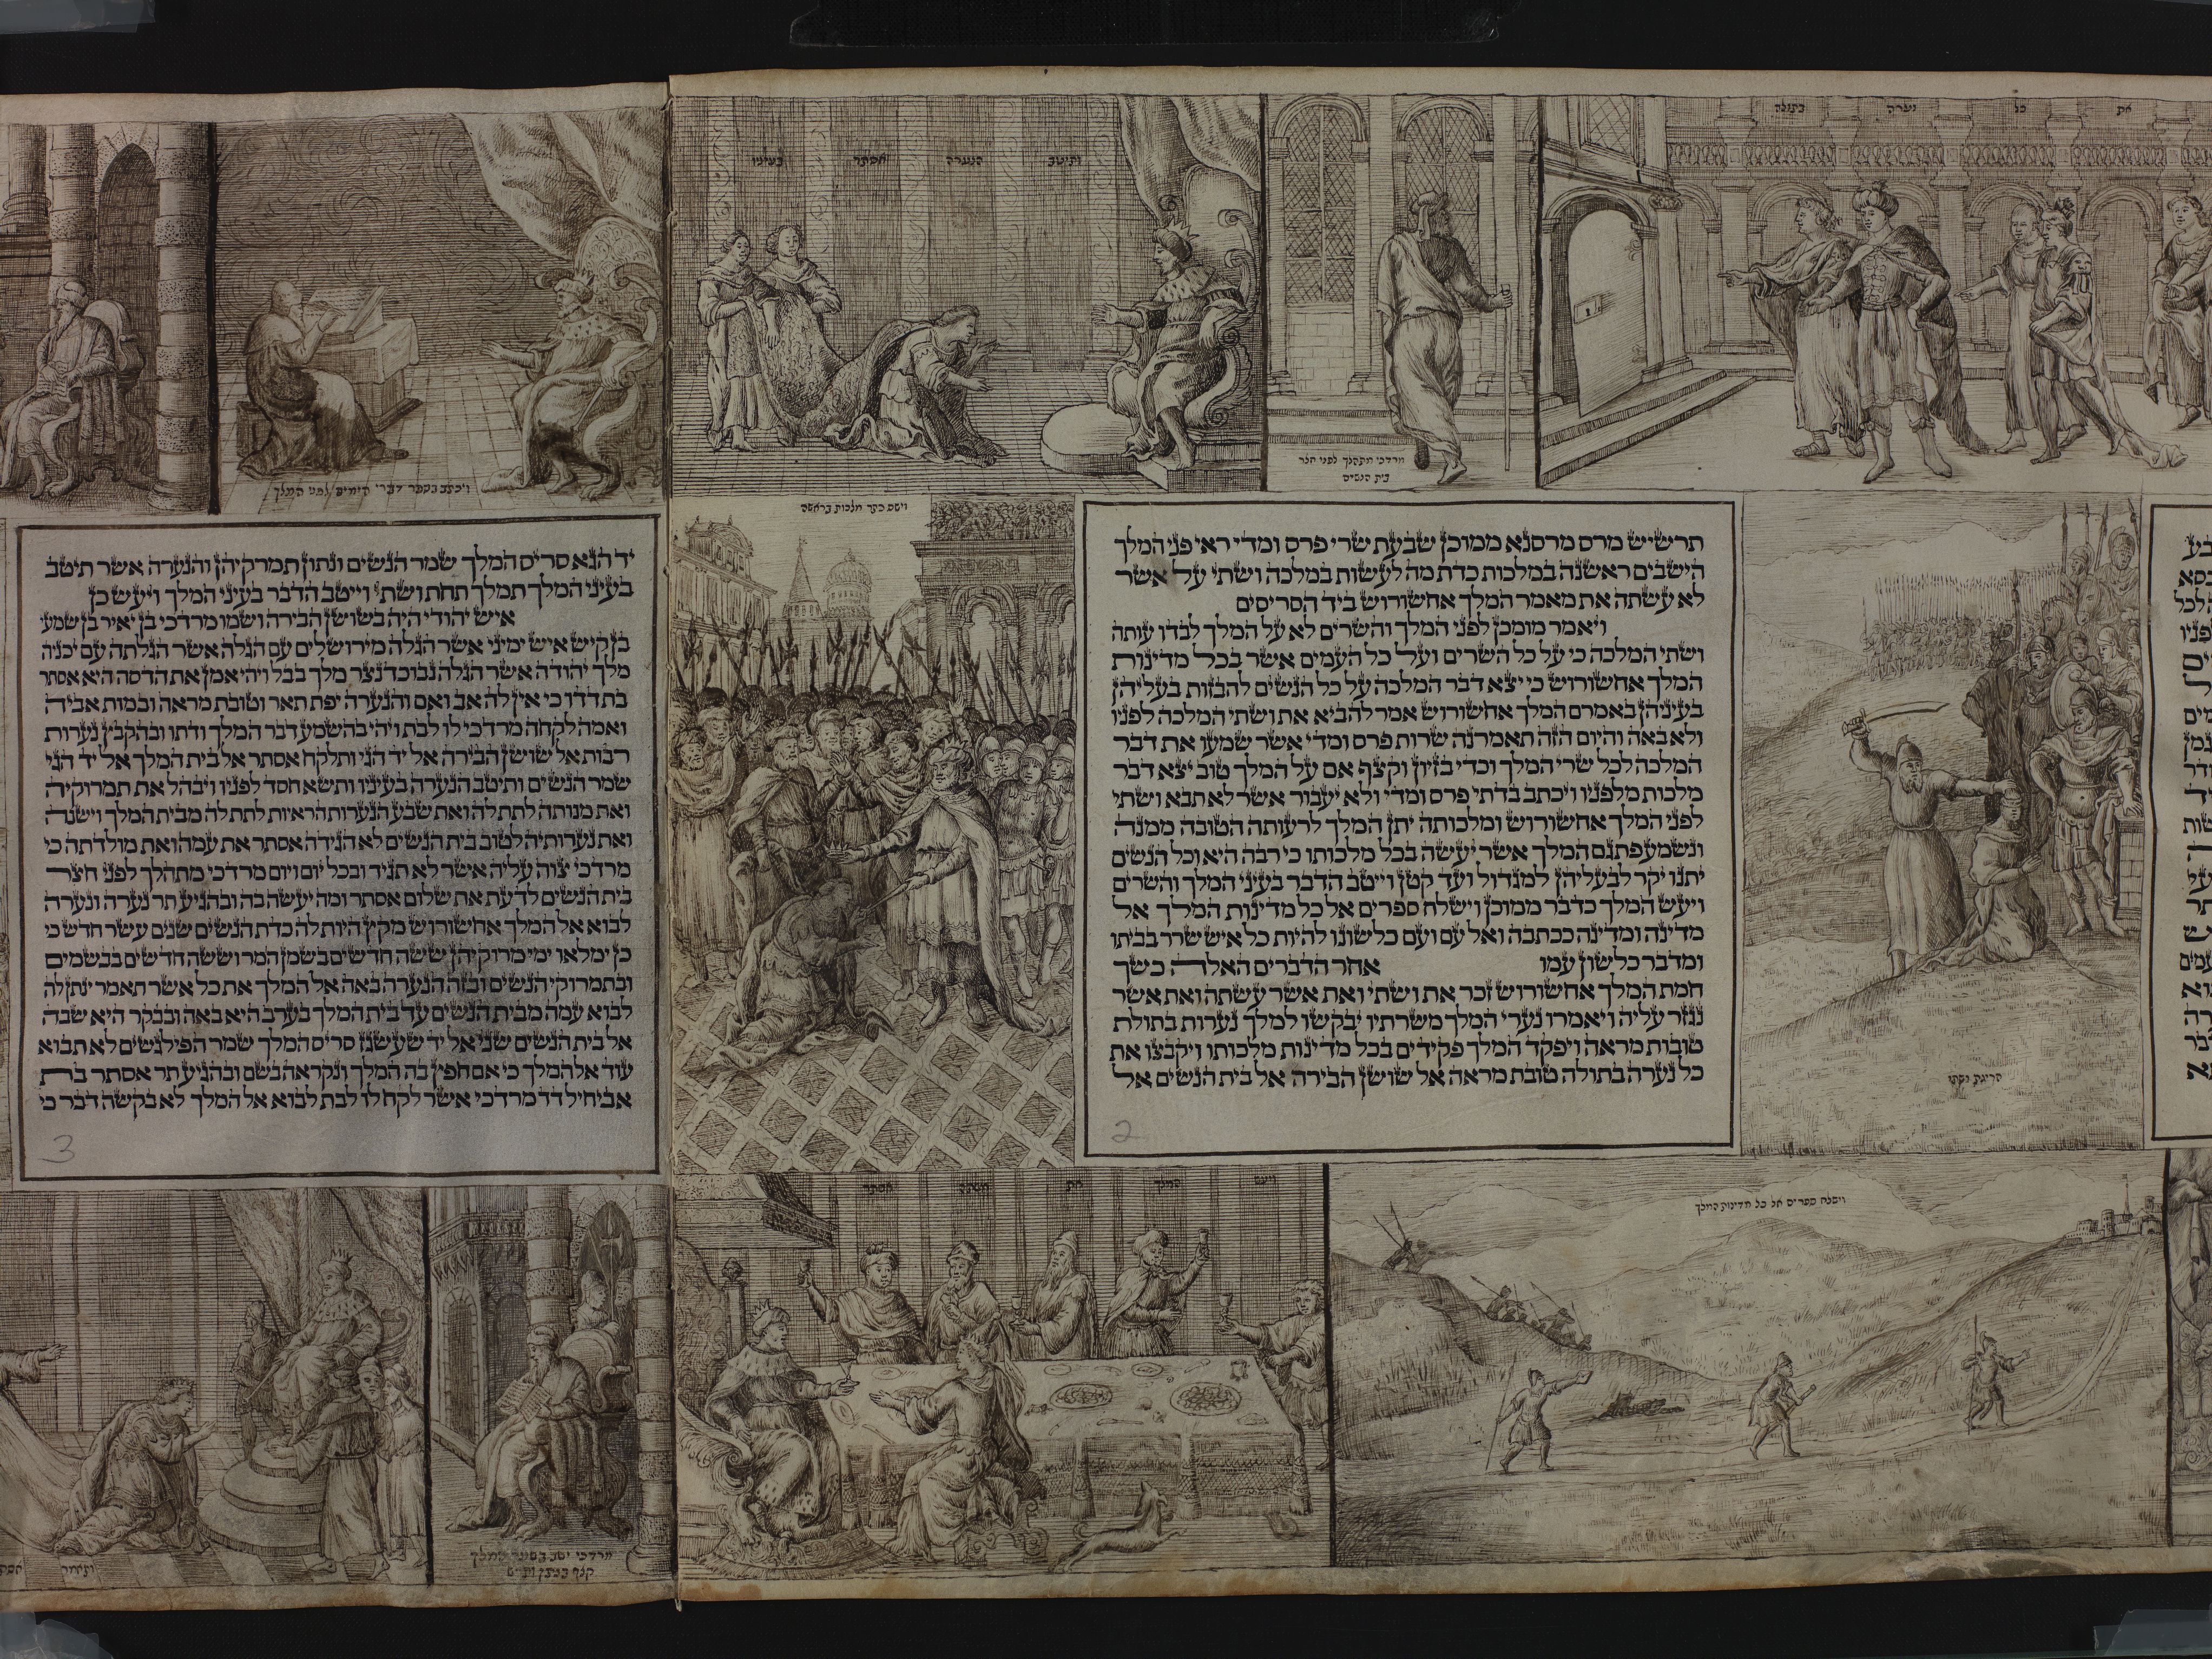 את כל נערה בתולה
מרדכי מתהלך לפני חצר
בית הנשים
ותיטב הנערה אסתר בעיניו
ויכתב בספר דברי הימים לפני המלך
הריגת ושתי
תרשיש מרס מרסנא ממוכן שבעת שרי פרס ומדי ראי פני המלך
הישבים ראשנה במלכות כדת מה לעשות במלכה ושתי על אשר
לא עשתה את מאמר המלך אחשורוש ביד הסריסים
ויאמר מומכן לפני המלך והשרים לא על המלך לבדו עותה
ושתי המלכה כי על כל השרים ועל כל העמים אשר בכל מדינות
המלך אחשורוש כי יצא דבר המלכה על כל הנשים להבזות בעליהן
בעיניהן באמרם המלך אחשורוש אמר להביא את ושתי המלכה לפניו
ולא באה והיום הזה תאמרנה שרות פרס ומדי אשר שמעו את דבר
המלכה לכל שרי המלך וכדי בזיון וקצף אם על המלך טוב יצא דבר
מלכות מלפניו ויכתב בדתי פרס ומדי ולא יעבור אשר לא תבא ושתי
לפני המלך אחשורוש ומלכותה יתן המלך לרעותה הטובה ממנה
ונשמע פתגם המלך אשר יעשה בכל מלכותו כי רבה היא וכל הנשים
יתנו יקר לבעליהן למגדול ועד קטן וייטב הדבר בעיני המלך והשרים
ויעש המלך כדבר ממוכן וישלח ספרים אל כל מדינות המלך אל
מדינה ומדינה ככתבה ואל עם ועם כלשונו להיות כל איש שרר בביתו
ומדבר כלשון עמו אחר הדברים האלה כשך
חמת המלך אחשורוש זכר את ושתי ואת אשר עשתה ואת אשר
נגזר עליה ויאמרו נערי המלך משרתיו יבקשו למלך נערות בתולת
טובות מראה ויפקד המלך פקידים בכל מדינות מלכותו ויקבצו את
כל נערה בתולה טובת מראה אל שושן הבירה אל בית הנשים אל
2
וישם כתר מלכות בראשה
יד הגא סריס המלך שמר הנשים ונתון תמרקיהן והנערה אשר תיטב
בעיני המלך תמלך תחת ושתי וייטב הדבר בעיני המלך ויעש כן
איש יהודי היה בשושן הבירה ושמו מרדכי בן יאיר בן שמעי
בן קיש איש ימיני אשר הגלה מירושלים עם הגלה אשר הגלתה עם יכניה
מלך יהודה אשר הגלה נבוכדנצר מלך בבל ויהי אמן את הדסה היא אסתר
בת דדו כי אין לה אב ואם והנערה יפת תאר וטובת מראה ובמות אביה
ואמה לקחה מרדכי לו לבת ויהי בהשמע דבר המלך ודתו ובהקבץ נערות
רבות אל שושן הבירה אל יד הגי ותלקח אסתר אל בית המלך אל יד הגי
שמר הנשים ותיטב הנערה בעיניו ותשא חסד לפניו ויבהל את תמרוקיה
ואת מנותה לתת לה ואת שבע הנערות הראיות לתת לה מבית המלך וישנה
ואת נערותיה לטוב בית הנשים לא הגידה אסתר את עמה ואת מולדתה כי
מרדכי צוה עליה אשר לא תגיד ובכל יום ויום מרדכי מתהלך לפני חצר
בית הנשים לדעת את שלום אסתר ומה יעשה בה ובהגיע תר נערה ונערה
לבוא אל המלך אחשורוש מקץ היות לה כדת הנשים שנים עשר חדש כי
כן ימלאו ימי מרוקיהן ששה חדשים בשמן המר וששה חדשים בבשמים
ובתמרוקי הנשים ובזה הנערה באה אל המלך את כל אשר תאמר ינתן לה
לבוא עמה מבית הנשים עד בית המלך בערב היא באה ובבקר היא שבה
אל בית הנשים שני אל יד שעשגז סריס המלך שמר הפילגשים לא תבוא
עוד אל המלך כי אם חפץ בה המלך ונקראה בשם ובהגיע תר אסתר בת
אביחיל דד מרדכי אשר לקח לו לבת לבוא אל המלך לא בקשה דבר כי
3
וישלח ספרים אל כל מדינות המלך
ויעש המלך את משתה אסתר
מרדכי ישב בשער המלך
קצף בגתן ותרש
ותאמר